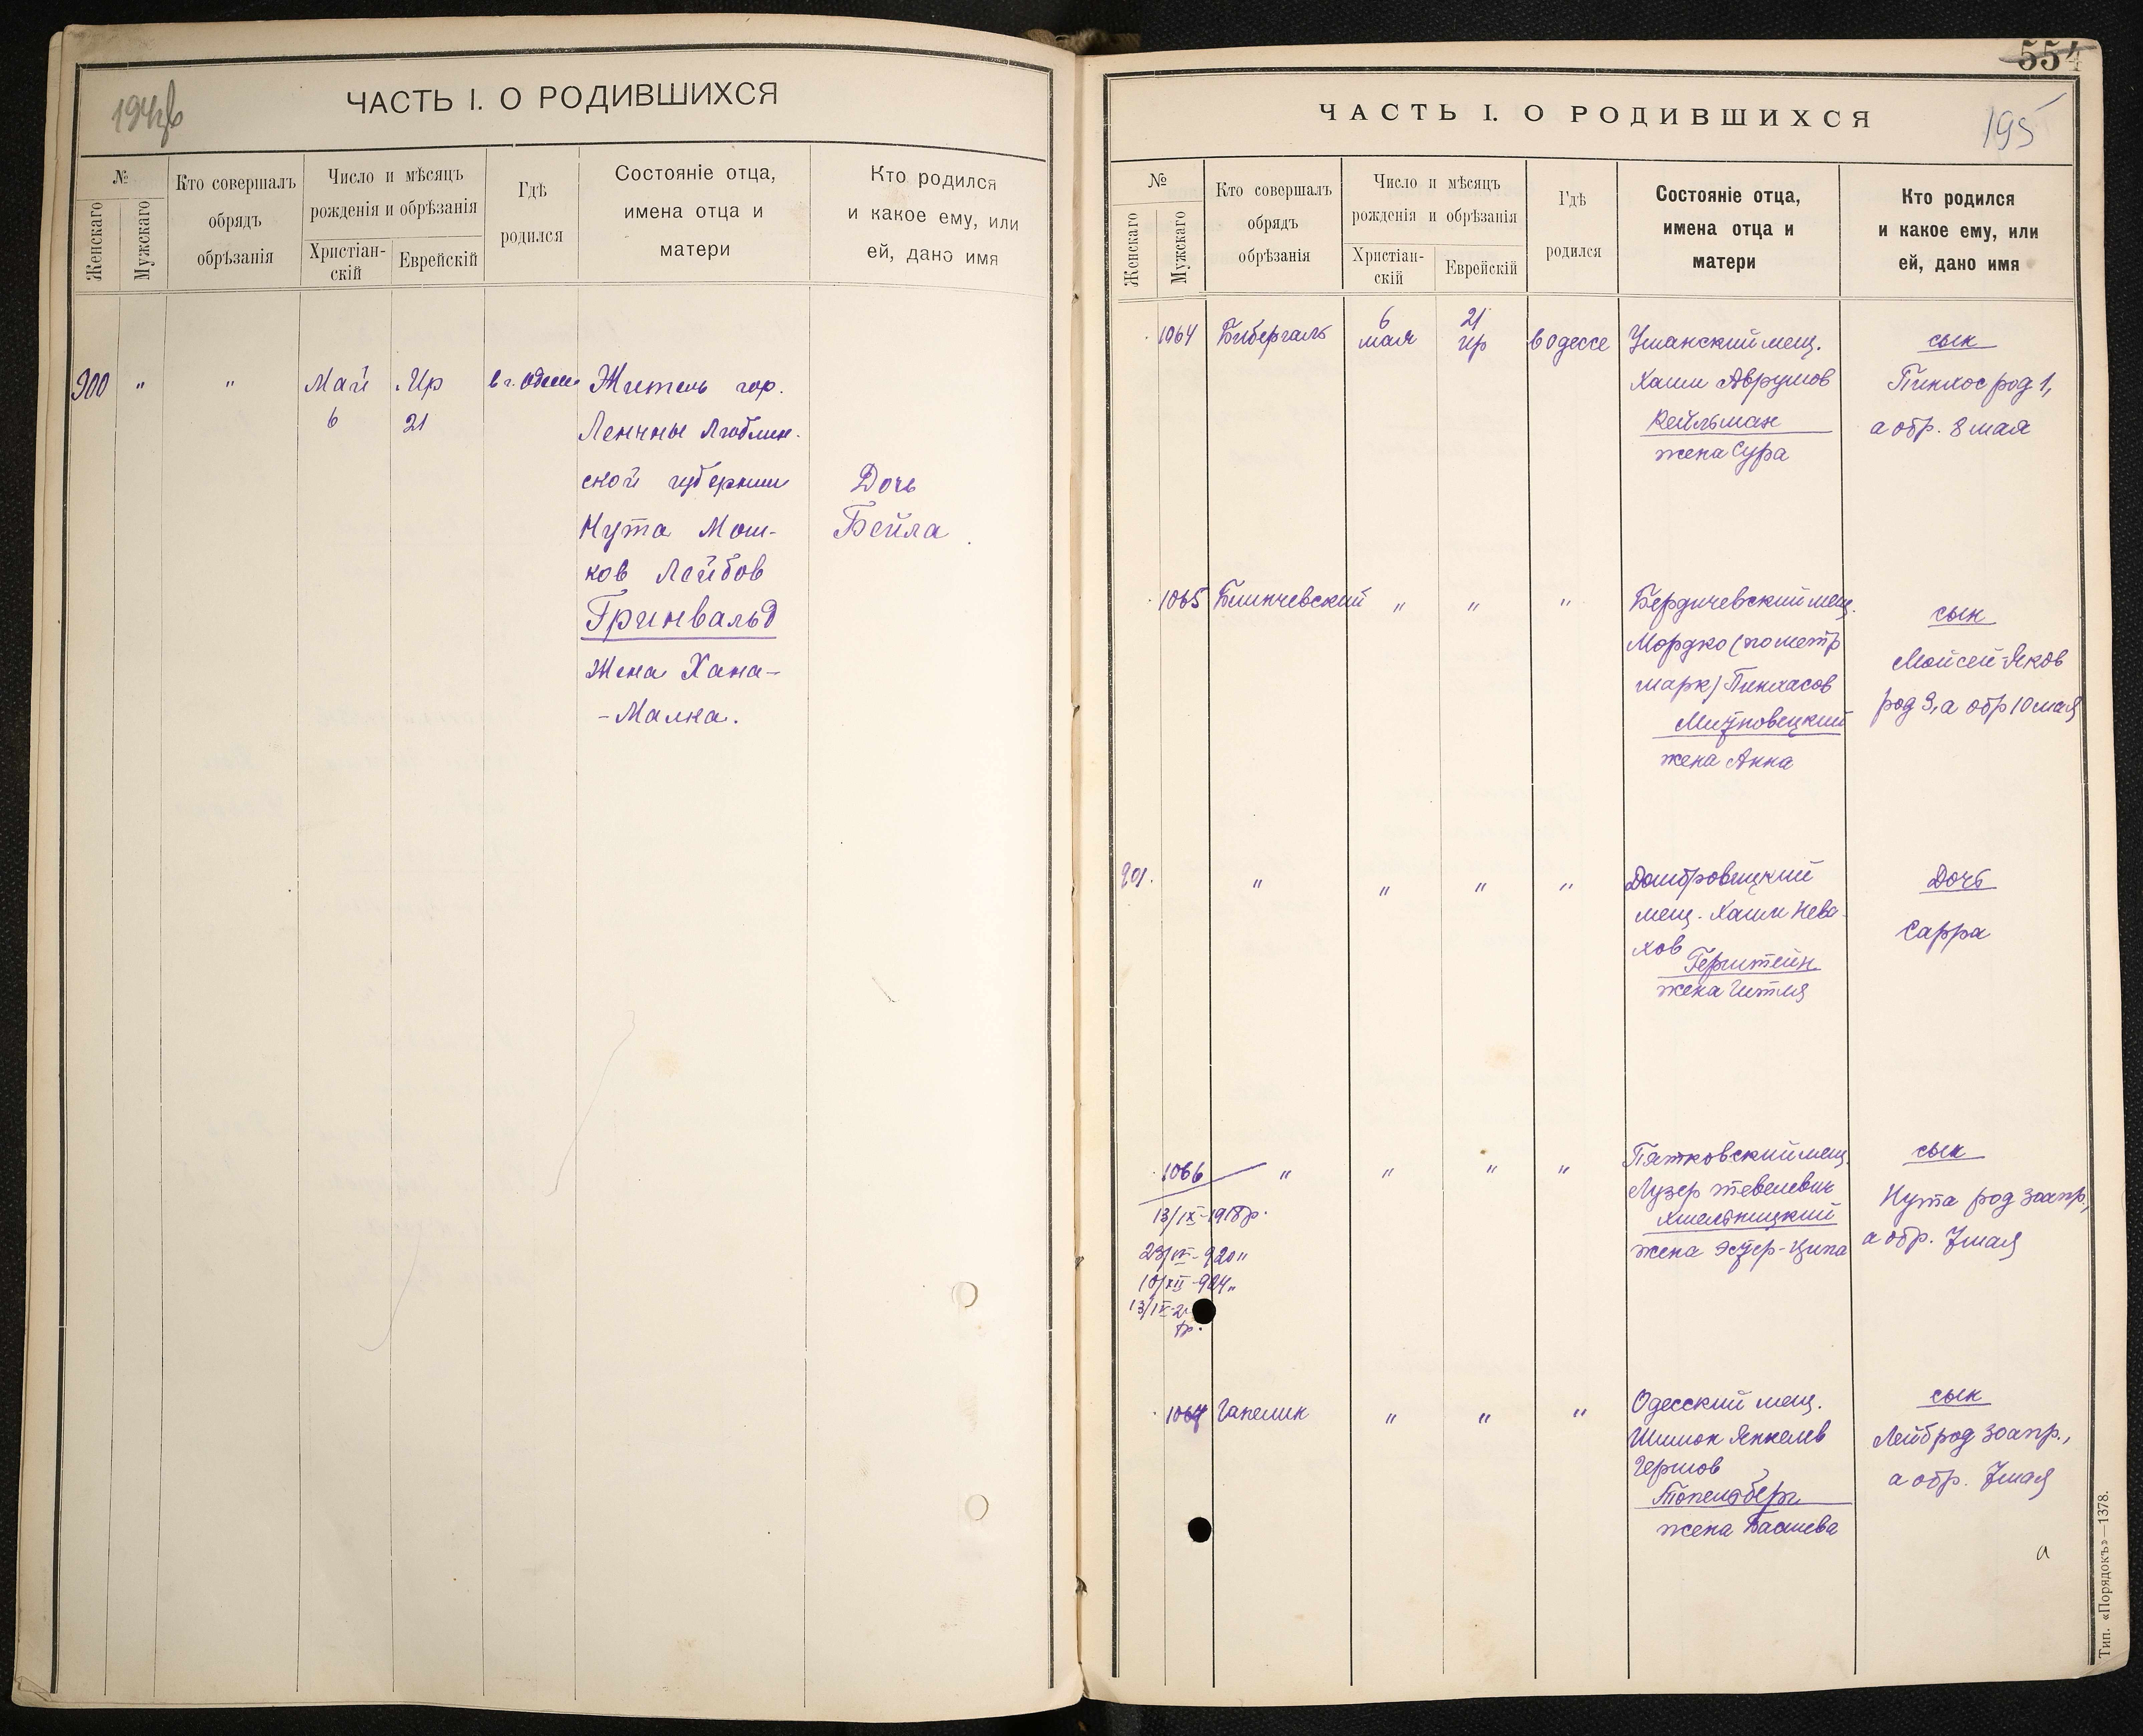 ЧАСТЬ I. О РОДИВШИХСЯ
№
Женскаго
Мужскаго
Кто совершалъ
обрядъ
обрѣзанія
Число и мѣсяцъ
рожденія и обрѣзанія
Христіан-
скій
Еврейскій
Гдѣ
родился
Состояніе отца,
имена отца и
матери
Кто родился
и какое ему, или
ей, дано имя
900 " " Май Ир в г. Одессе
6 21
Житель гор.
Ленчны Люблин-
ской губернии
Нута Мош-
ков Лейбов
Гринвальд
Жена Хана-
-Малка.
Дочь
Бейла
554
ЧАСТЬ I. О РОДИВШИХСЯ
195
№
Женскаго
Мужскаго
Кто совершалъ
обрядъ
обрѣзанія
Число и мѣсяцъ
рожденія и обрѣзанія
Христіан-
скій
Еврейскій
Гдѣ
родился
Состояніе отца,
имена отца и
матери
Кто родился
и какое ему, или
ей, дано имя
1064 Бибергаль 6 мая 21 Ир в Одессе
Уманский мещ.
Хаим Аврумов
Кейльман
жена Сура
сын
Пинхос род 1,
а обр. 8 мая
1065 " " "
Бердичевский мещ.
Мордко (по метр
Марк) Пинхасов
жена Анна
сын
Мойсей-Яков
род 3, а обр 10 мая
901. " " " "
Домбровицкий
мещ. Хаим Нева-
хов
Герштейн
жена Гитля
Дочь
Сарра
1066 " " " "
13/IX-1918р.
10/XII-924"
Пятковский мещ.
Лузер Тевелевич
Хмельницкий
жена Эстер-Ципа
сын
Нута род 30 апр.,
а обр. 7 мая
1067 Гапелик " " "
Одесский мещ.
Шимон Янкелев
Гершов
жена Басшева
сын
Лейб род 30 апр.,
а обр. 7 мая
Тип. «Порядокъ»—1378.